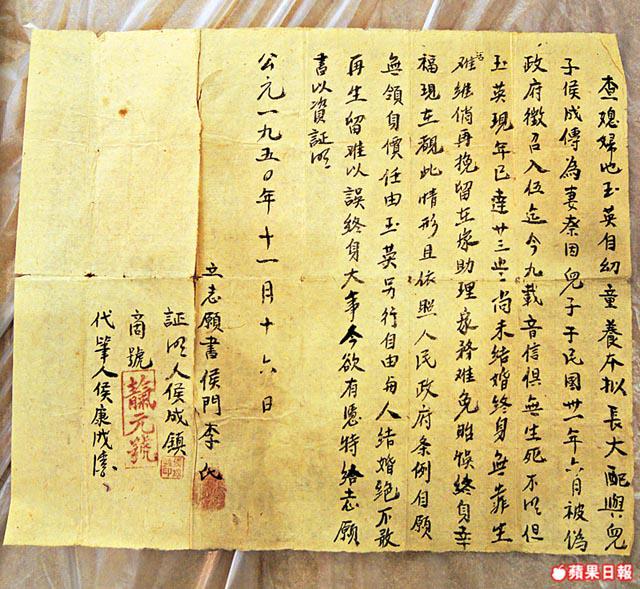 查媳婦池玉英自幼童養本拟長大配與兒
子侯成傳為妻奈因兒子于民國卅一年六月被偽
政府徵召入伍迄今九載音信俱無生死不明但
玉英現年已達廿三歲尚未結婚終身無靠生活
难維倘再挽留在家助理家務难免貽悞終身幸
福現在覩此情形且依照人民政府条例自願
無領自價任由玉英另行自由与人結婚絕不敢
再生留难以誤終身大事今欲有憑特给志願
書以資証明
公元一九五〇年十一月十六日
立志願書侯門李氏
証明人侯成鎮
商號
元號
代筆人侯康成
蘋果日報